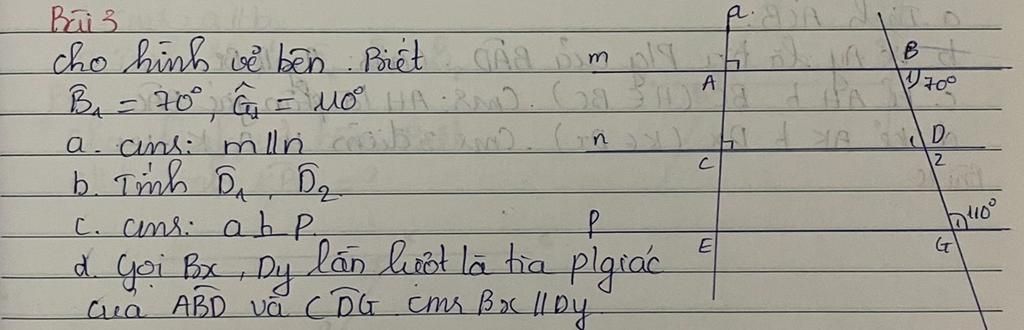 Bài 3
cho hình vẽ bên. Biết
B̂₁ = 70°, Ĝ₁ = 110°
a. cms: m//n
b. Tính D̂₁, D̂₂
c. cms: a ⊥ p.
d. gọi Bx, Dy lần lượt là tia plgiác
của AB̂D và CD̂G cms Bx // Dy
a
m A B 1 70°
n C 1 D 2
p E G 1 110°